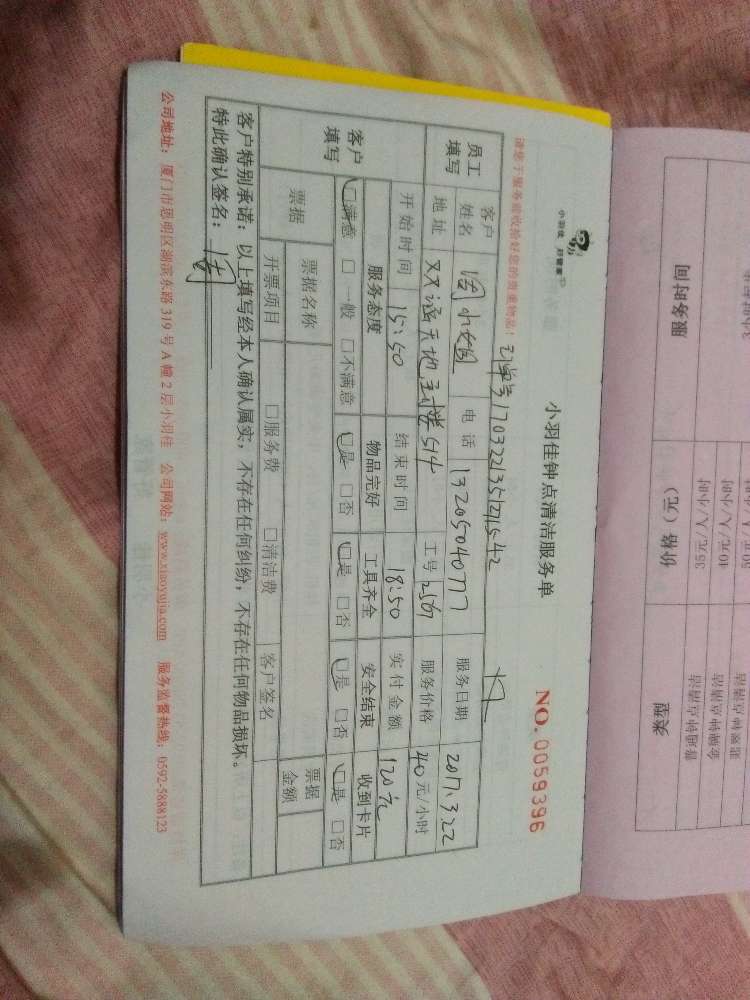 小羽佳钟点清洁服务单
小羽佳
NO. 0059396
请您于服务前收拾好您的贵重物品!
订单号170322135121542
员工填写
客户姓名 周小姐 电话 13205040777 服务日期 2017.3.22
地址 双涵天地主楼514 工号 2567 服务价格 40元/小时
客户填写
开始时间 15:50 结束时间 18:50 实付金额 120元
服务态度 物品完好 工具齐全 安全结束 收到卡片
□满意 □一般 □不满意 □是 □否 □是 □否 □是 □否 □是 □否
票据 票据名称 票据金额
开票项目 □服务费 □清洁费 客户签名
客户特别承诺:以上填写经本人确认属实,不存在任何纠纷,不存在任何物品损坏。
特此确认签名: 周
公司地址:厦门市思明区湖滨东路319号A幢2层小羽佳 公司网站:www.xiaoyujia.com 服务监督热线:0592-5888123
服务时间 价格(元) 类型
35元/人/小时 普通钟点清洁
40元/人/小时